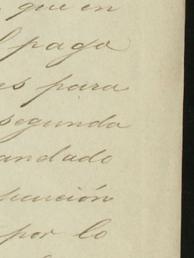 que en
pago
es para
segunda
andado
por lo